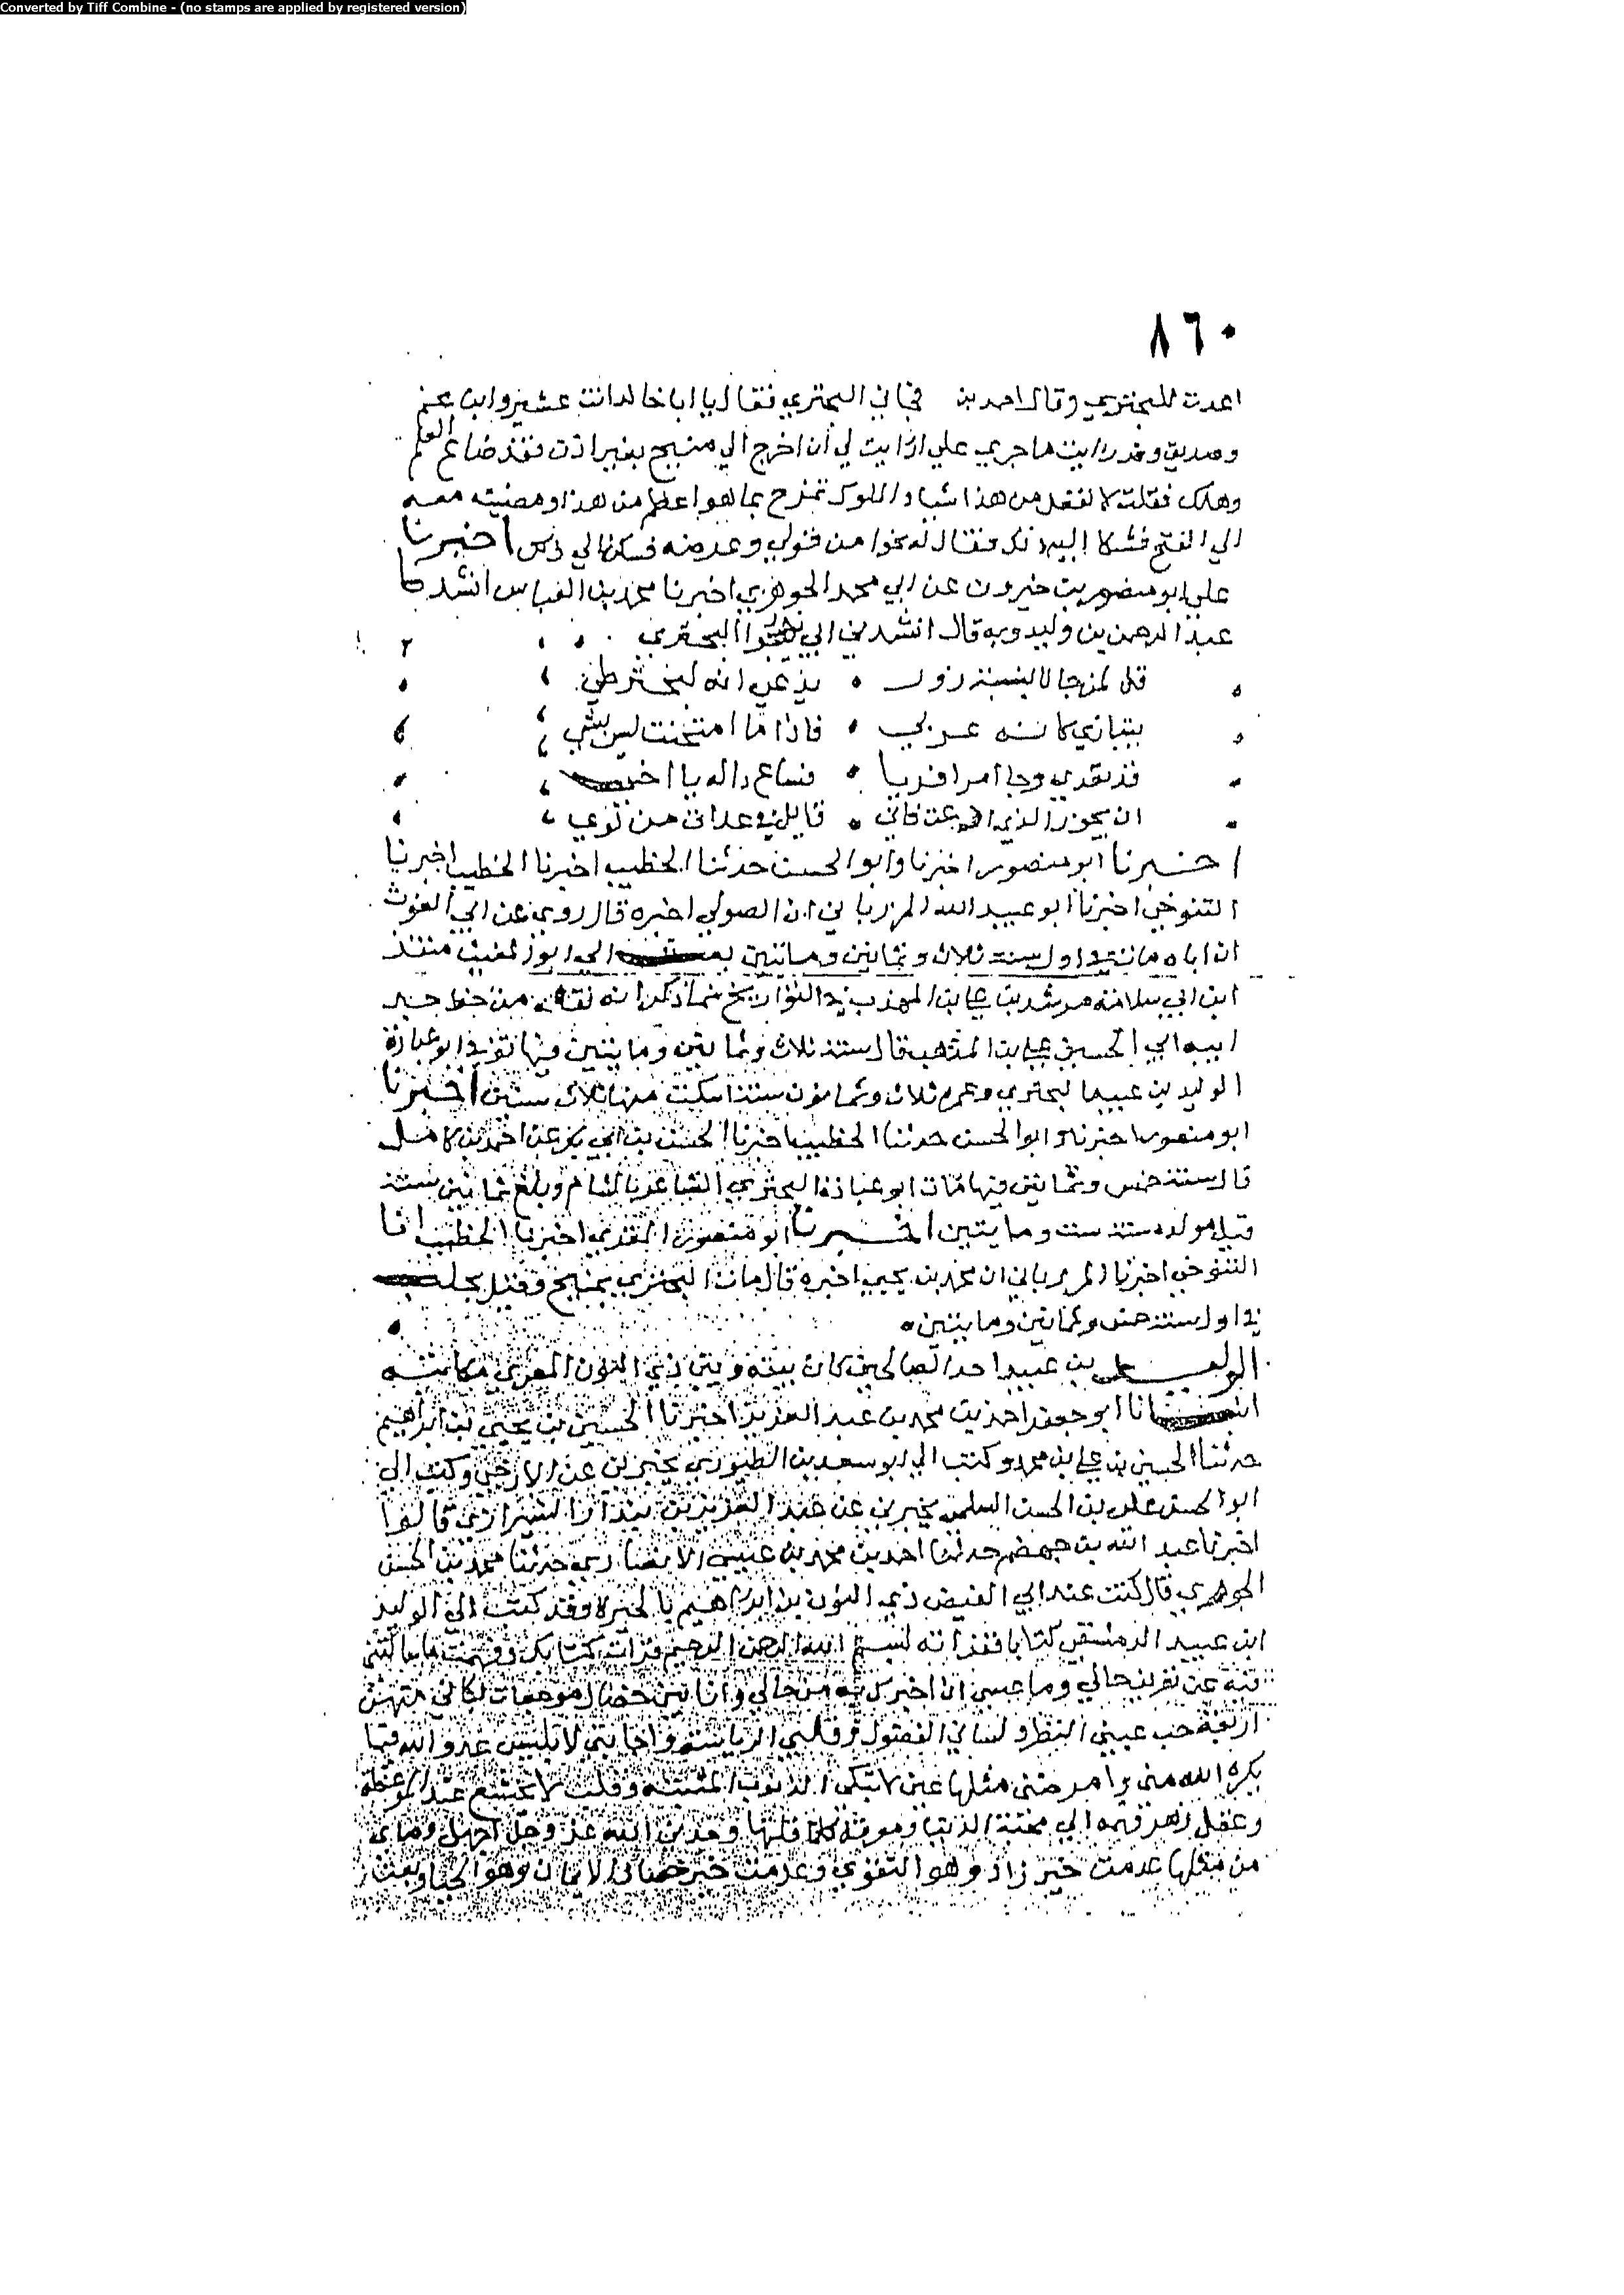 Converted by Tiff Combine - (no stamps are applied by registered version)
٨٦٠
اعدت للبحتري وقال احمد بن فجاني البحتري فقال يا ابا خالد انت عشيرو ابن عم
وصديق وقد رايت ما جري علي افرايت لي ان اخرج الي منبج بغير اذن فقد ضاع العلم
وهلك فقلت لا تفعل من هذا شيا والملوك تمزح بما هو اعظم من هذا ومضيت معه
الي الفتح فشكا اليه ذلك فقال له نحوا من قولي وعرضه فسكن الي ذلك اخبرنا
علي ابو منصور بن خيرون عن ابي محمد الجوهري اخبرنا محمد بن العباس انشدنا
عبد الرحمن بن وليدويه قال انشدني ابي البحتري
قل لمن جا لا لنسبة زور يدعي انه لبحتر طي
بتبازي كانه عربي فاذا ما امتحنت ليس بشي
ان يجوز الذي فاني قايل في عداتي من لوي
اخبرنا ابو منصور اخبرنا وابو الحسن حدثنا الخطيب اخبرنا الخطيب اخبرنا
التنوخي اخبرنا ابو عبيد الله المرزباني ان الصولي اخبره قال روي عن ابي الغوث
ان اباه مات في اول سنة ثلاث وثمانين وماتين الي ابو المغيث منقذ
ابن ابي سلامة مرشد بن علي بن المهذب في التواريخ مما ذكر انه نقله من خط جد
ابيه ابي الحسين علي بن المهذب قال سنة ثلاث وثمانين ومايتين فيها توفي ابو عبادة
الوليد بن عبيد البحتري وعمره ثلاث وثمانون سنة اخبرنا
ابو منصور اخبرنا و ابو الحسن حدثنا الخطيب اخبرنا الحسن بن ابي بكر عن احمد بن كامل
قال سنة خمس وثمانين فيها مات ابو عبادة البحتري الشاعر بالشام وبلغ ثمانين سنة
قيل مولده سنة ست ومايتين اخبرنا ابو منصور المقري اخبرنا الخطيب انا
التنوخي اخبرنا المرزباني ان محمد بن يحيى اخبره قال مات البحتري بمنبج وقيل بحلب
في اول سنة خمس وثمانين ومايتين
الوليد بن عبيد احد الصالحين كان بينه وبين ذي النون المصري مكاتبة
انا ابو جعفر احمد بن محمد بن عبد العزيز اخبرنا الحسين بن يحيى بن ابراهيم
حدثنا الحسين بن علي بن محمد وكتب الي ابو سعد بن الطيوري يخبرني عن الازجي وكتب الي
ابو الحسن علي بن الحسن السلمي يخبرني عن عبد العزيز بن بندار الشيرازي قالوا
اخبرنا عبد الله بن جهضم حدثنا احمد بن محمد بن عيسى الانصاري حدثنا محمد بن الحسن
الجوهري قال كنت عند ابي الفيض ذي النون بن ابراهيم بالجيزة وقد كتب الي الوليد
ابن عبيد الدمشقي كتابا فقراته بسم الله الرحمن الرحيم قرات كتابك وفهمت ما سالتني
فيه عن تعريف حالي وما عسي ان اخبرك به من حالي وانا بين خصال موجعات ابكاني منهن
اربعة حب عيني النظر ولساني الفضول وقلبي الرياسة واجابتي لابليس عدو الله فيما
يكره الله مني وامرضني مثلها عين لا تبكي الذنوب المنتنة وقلب لا يخشع عند الموعظة
وعقل زهد فهمه الي محبة الدنيا ومعرفة كلما قلبتها وجدتني بالله عز وجل اجهل
من مثلها عدمت خير زاد وهو التقوي وعدمت خير خصال الايمان وهو الحيا